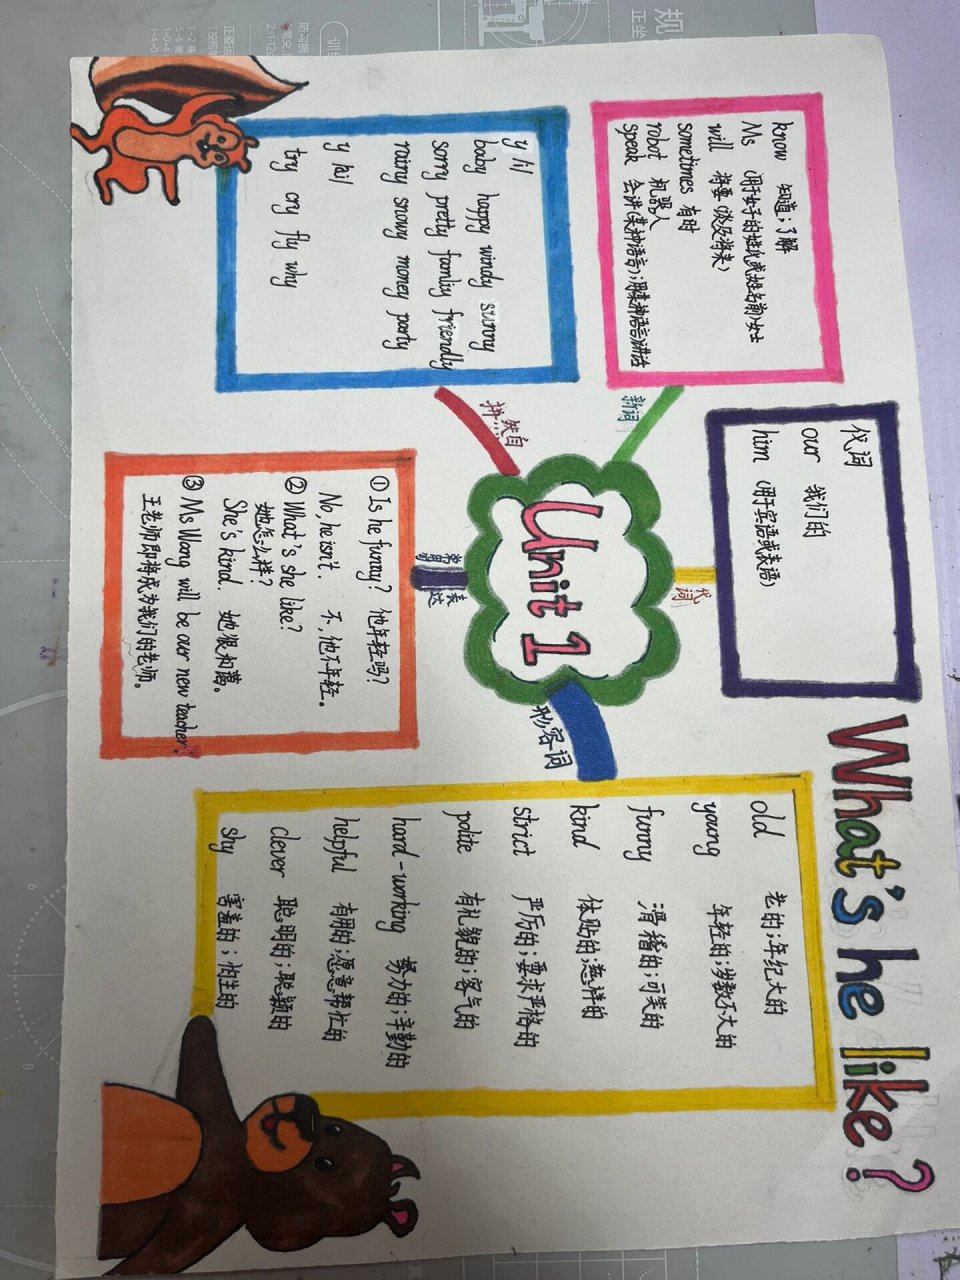 What's he like?
know 知道；了解
Ms (用于女子的姓氏或姓名前)女士
will 将要(谈及将来)
sometimes 有时
robot 机器人
speak 会讲(某种语言)；用某种语言讲话
新词
代词
our 我们的
him (用于宾语或表语)
代词
Unit 1
y /i/
baby happy windy sunny
sorry pretty family friendly
rainy snowy money party
y /ai/
try cry fly why
拼然自
① Is he funny? 他年轻吗？
No, he isn't. 不，他不年轻。
② What's she like?
她怎么样？
She's kind. 她很和蔼。
③ Ms Wang will be our new teacher.
王老师即将成为我们的老师。
常用
表达
形容词
old 老的；年纪大的
young 年轻的；岁数不大的
funny 滑稽的；可笑的
kind 体贴的；慈祥的
strict 严厉的；要求严格的
polite 有礼貌的；客气的
hard-working 努力的；辛勤的
helpful 有用的；愿意帮忙的
clever 聪明的；聪颖的
shy 害羞的；怕生的